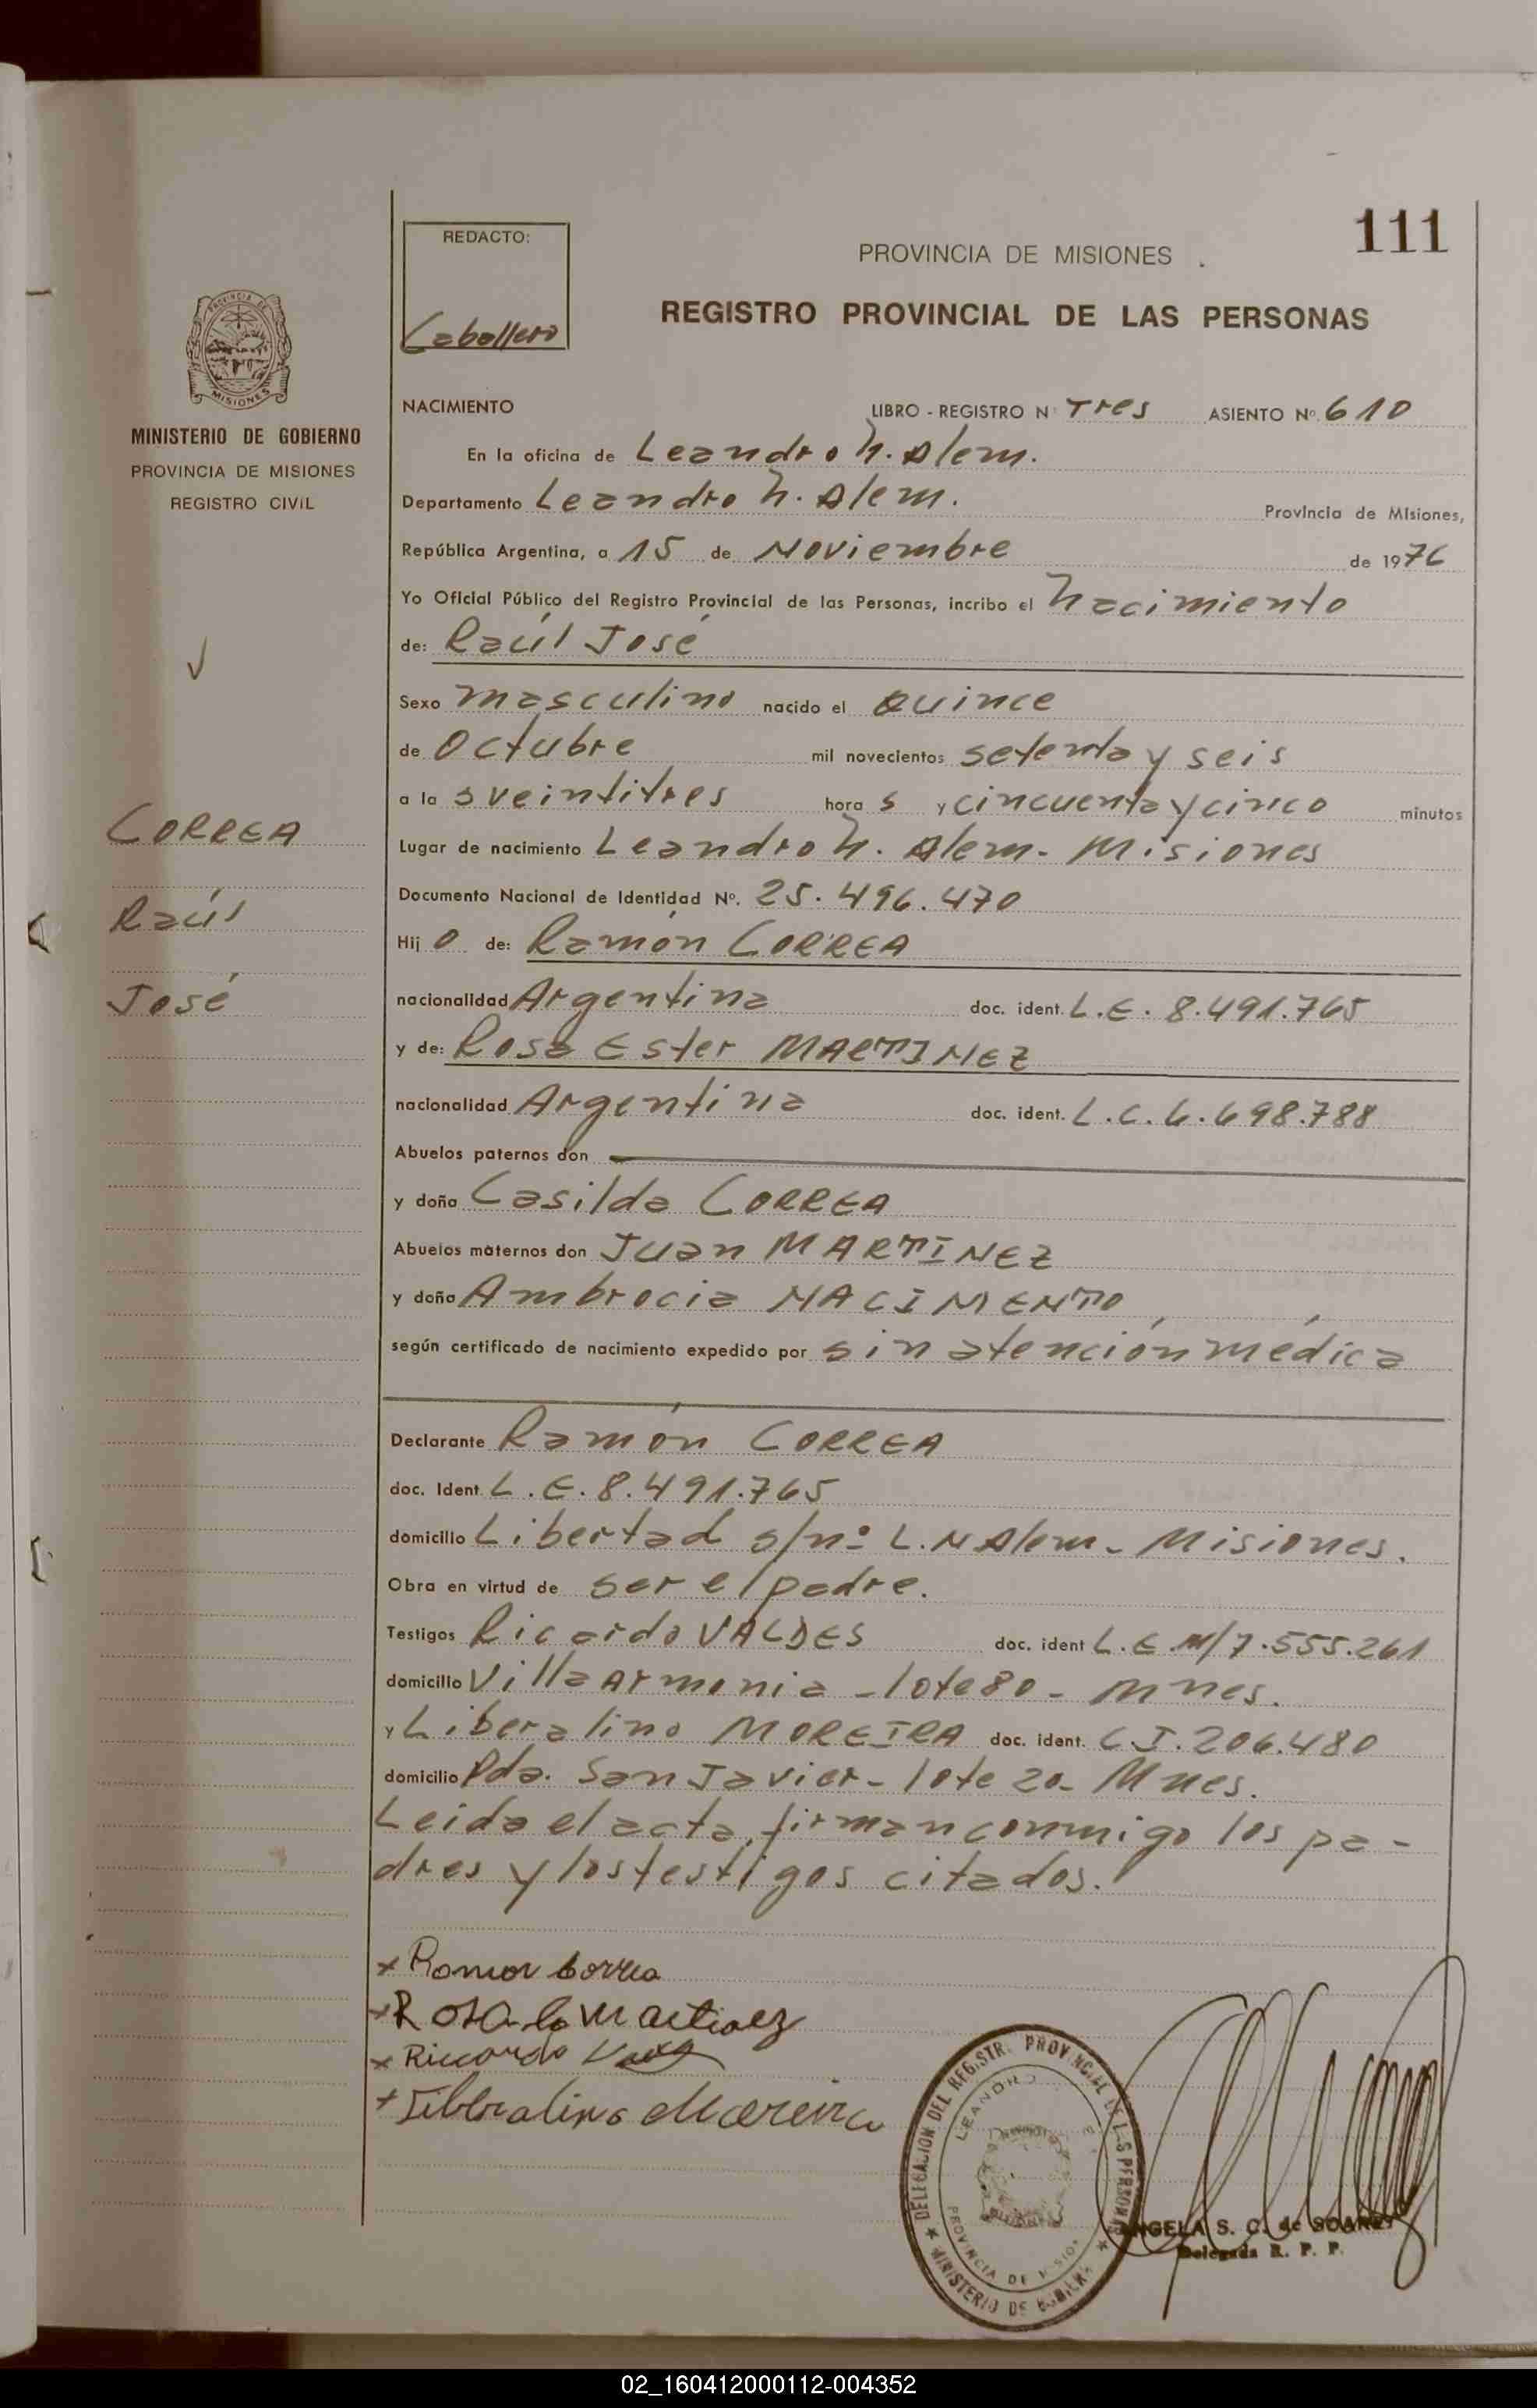 111
REDACTO:
Caballero
PROVINCIA DE MISIONES
REGISTRO PROVINCIAL DE LAS PERSONAS
MINISTERIO DE GOBIERNO
PROVINCIA DE MISIONES
REGISTRO CIVIL
NACIMIENTO LIBRO - REGISTRO Nº Tres ASIENTO Nº 610
En la oficina de Leandro N. Alem.
Departamento Leandro N. Alem. Provincia de Misiones,
República Argentina, a 15 de Noviembre de 1976
Yo Oficial Público del Registro Provincial de las Personas, incribo el Nacimiento
de: Raúl José
Sexo masculino nacido el Quince
de Octubre mil novecientos setenta y seis
a la s veintitres hora s y cincuenta y cinco minutos
Lugar de nacimiento Leandro N. Alem - Misiones
Documento Nacional de Identidad Nº. 25.496.470
Hij o de: Ramón CORREA
nacionalidad Argentina doc. ident. L.E. 8.491.765
y de: Rosa Ester MARTINEZ
nacionalidad Argentina doc. ident. L.C. 6.698.788
Abuelos paternos don
y doña Casilda CORREA
Abuelos maternos don Juan MARTINEZ
y doña Ambrocia NACIMENTO
según certificado de nacimiento expedido por sin atención médica
Declarante Ramón CORREA
doc. Ident. L.E. 8.491.765
domicilio Libertad s/nº L.N Alem - Misiones.
Obra en virtud de ser el padre.
Testigos Ricardo VALDES doc. ident L.E.M/7.555.261
domicilio Villa Armonia - lote 80 - Mnes.
y Liberalino MOREIRA doc. ident. C.I. 206.480
domicilio Pda. San Javier - lote 20 - Mnes.
Leida el acta, firman conmigo los pa-
dres y los testigos citados.
CORREA
Raúl
José
x Ramon Correa
x Rosa E Martinez
x Ricardo
x Liberalino Moreira
DELEGACION DEL REGISTR. PROVINCIAL DE LAS PERSONAS
MINISTERIO DE GOBIERNO
LEANDRO
PROVINCIA DE MISIONES
ANGELA S. C. de SOARES
Delegada R. P. P.
02_160412000112-004352